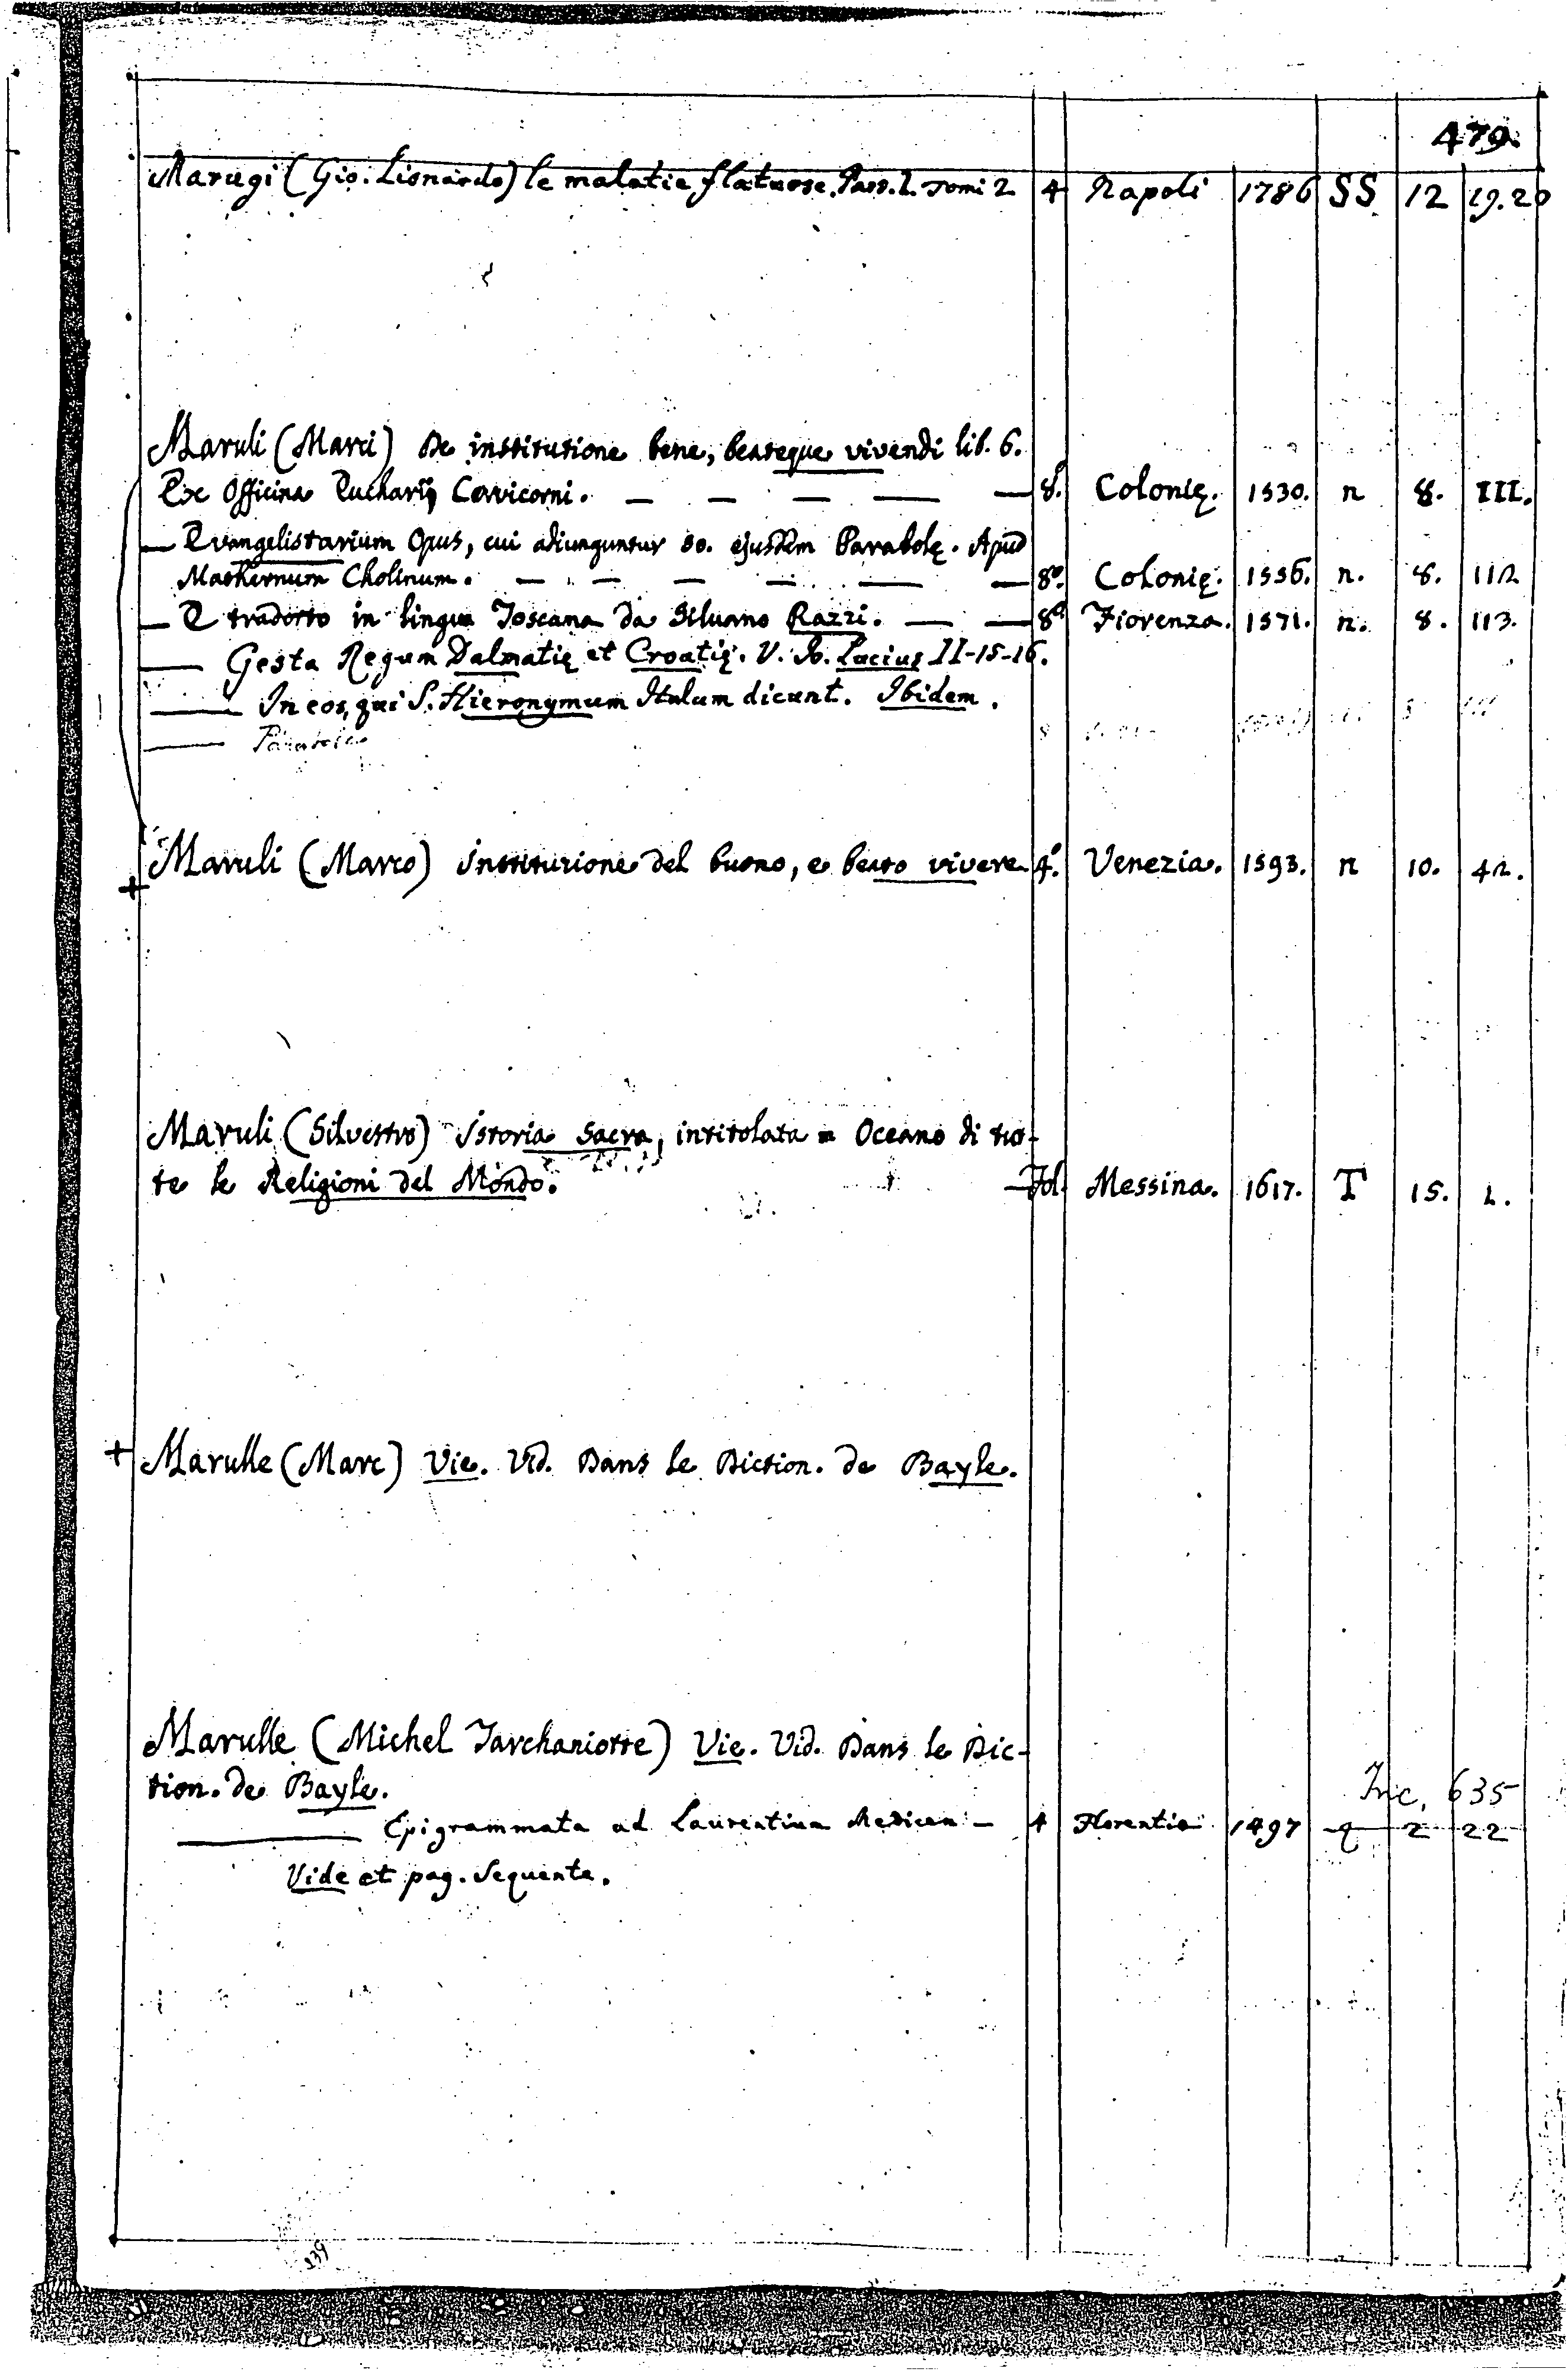 479.
Marugi (Gio. Lionardo) le malatie flatuose. Par. 2. Tomi 2 4 Napoli 1786 SS 12 19.20
Maruli (Marci) De institutione bene, beateque vivendi lib. 6.
Ex Officina Eucharij Cervicorni. — — — — — 8.º Colonię. 1530. n 8. III.
— Evangelistarium Opus, cui adiunguntur 50. ejusdem Parabolę. Apud
Maternum Cholinum. — — — — — — 8º. Colonię. 1556. n. 8. 112
— E tradotto in lingua Toscana da Siluano Razzi. — — 8º Fiorenza. 1571. n. 8. 113.
— Gesta Regum Dalmatię et Croatię. V. Jo. Lucius II-15-16.
— In eos, qui S. Hieronymum Italum dicunt. Ibidem.
— Parabole
Maruli (Marco) Instituzione del buono, e beato vivere 4º. Venezia. 1593. n 10. 42.
+
Maruli (Silvestro) Istoria Sacra, intitolata = Oceano di tut-
te le Religioni del Mondo. — Fol. Messina. 1617. T 15. 2.
+ Marulle (Marc) Vie. Vid. Dans le Diction. de Bayle.
Marulle (Michel Tarchaniotte) Vie. Vid. Dans le Dic-
tion. de Bayle.
Inc. 635
— Epigrammata ad Laurentium Medicen — 4 Florentiæ 1497 q 2 22
Vide et pag. Sequente.
239